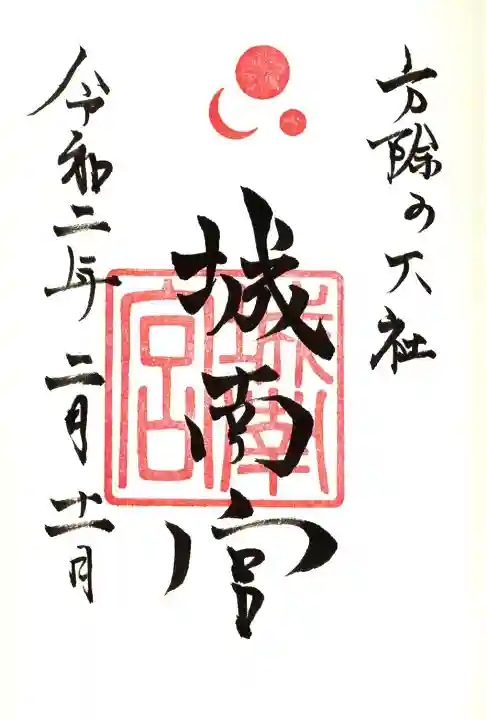 方除の大社
城南宮
城南宮
令和二年二月十一日